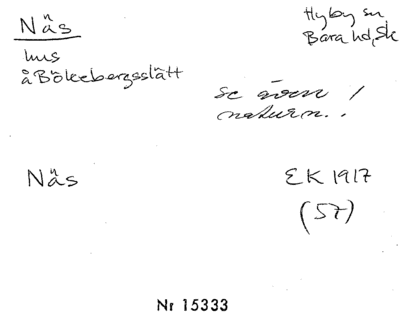 Näs
Hyby sn
Bara hd, Sk
hus
å Bökebergsslätt
se även /
naturn..
Näs
EK 1917
(57)
Nr 15333